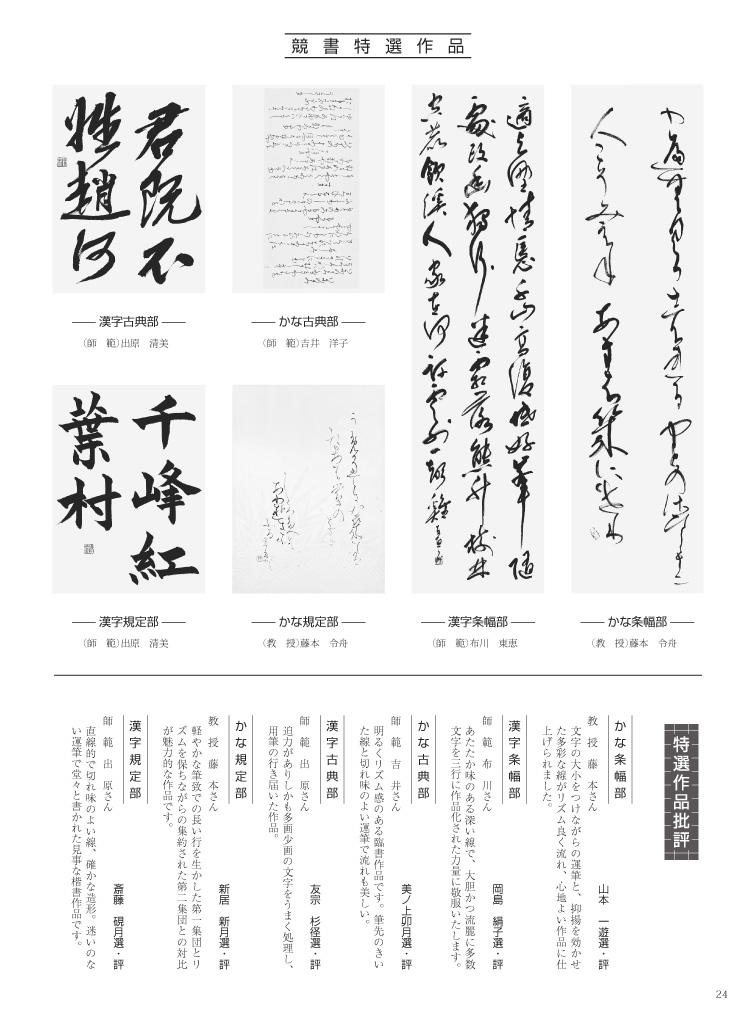 競書特選作品
君既不
姓趙何
漢字古典部
(師　範)出原　清美
かな古典部
(師　範)吉井　洋子
千峰紅
葉村
漢字規定部
(師　範)出原　清美
かな規定部
(教　授)藤本　令舟
適与野情愜千山高復低好峯随
處改幽徑獨行迷霜落熊升樹林
空鹿飲溪人家在何許雲外一聲雞
漢字条幅部
(師　範)布川　東恵
かな条幅部
(教　授)藤本　令舟
特選作品批評
かな条幅部
山本　一遊選・評
教　授　藤　本さん
文字の大小をつけながらの運筆と、抑揚を効かせ
た多彩な線がリズム良く流れ、心地よい作品に仕
上げられました。
漢字条幅部
岡島　絹子選・評
師　範　布　川さん
あたたか味のある深い線で、大胆かつ流麗に多数
文字を三行に作品化された力量に敬服いたします。
かな古典部
美ノ上卯月選・評
師　範　吉　井さん
明るくリズム感のある臨書作品です。筆先のきい
た線と切れ味のよい運筆で流れも美しい。
漢字古典部
友宗　杉径選・評
師　範　出　原さん
迫力がありしかも多画少画の文字をうまく処理し、
用筆の行き届いた作品。
かな規定部
新居　新月選・評
教　授　藤　本さん
軽やかな筆致での長い行を生かした第一集団とリ
ズムを保ちながらの集約された第二集団との対比
が魅力的な作品です。
漢字規定部
斎藤　硯月選・評
師　範　出　原さん
直線的で切れ味のよい線、確かな造形。迷いのな
い運筆で堂々と書かれた見事な楷書作品です。
24